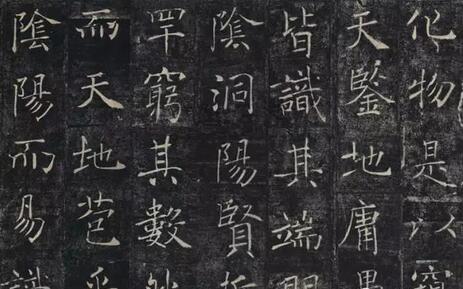 化物是以窺
天鑒地庸愚
皆識其端明
陰洞陽賢哲
罕窮其數然
而天地苞乎
陰陽而易識